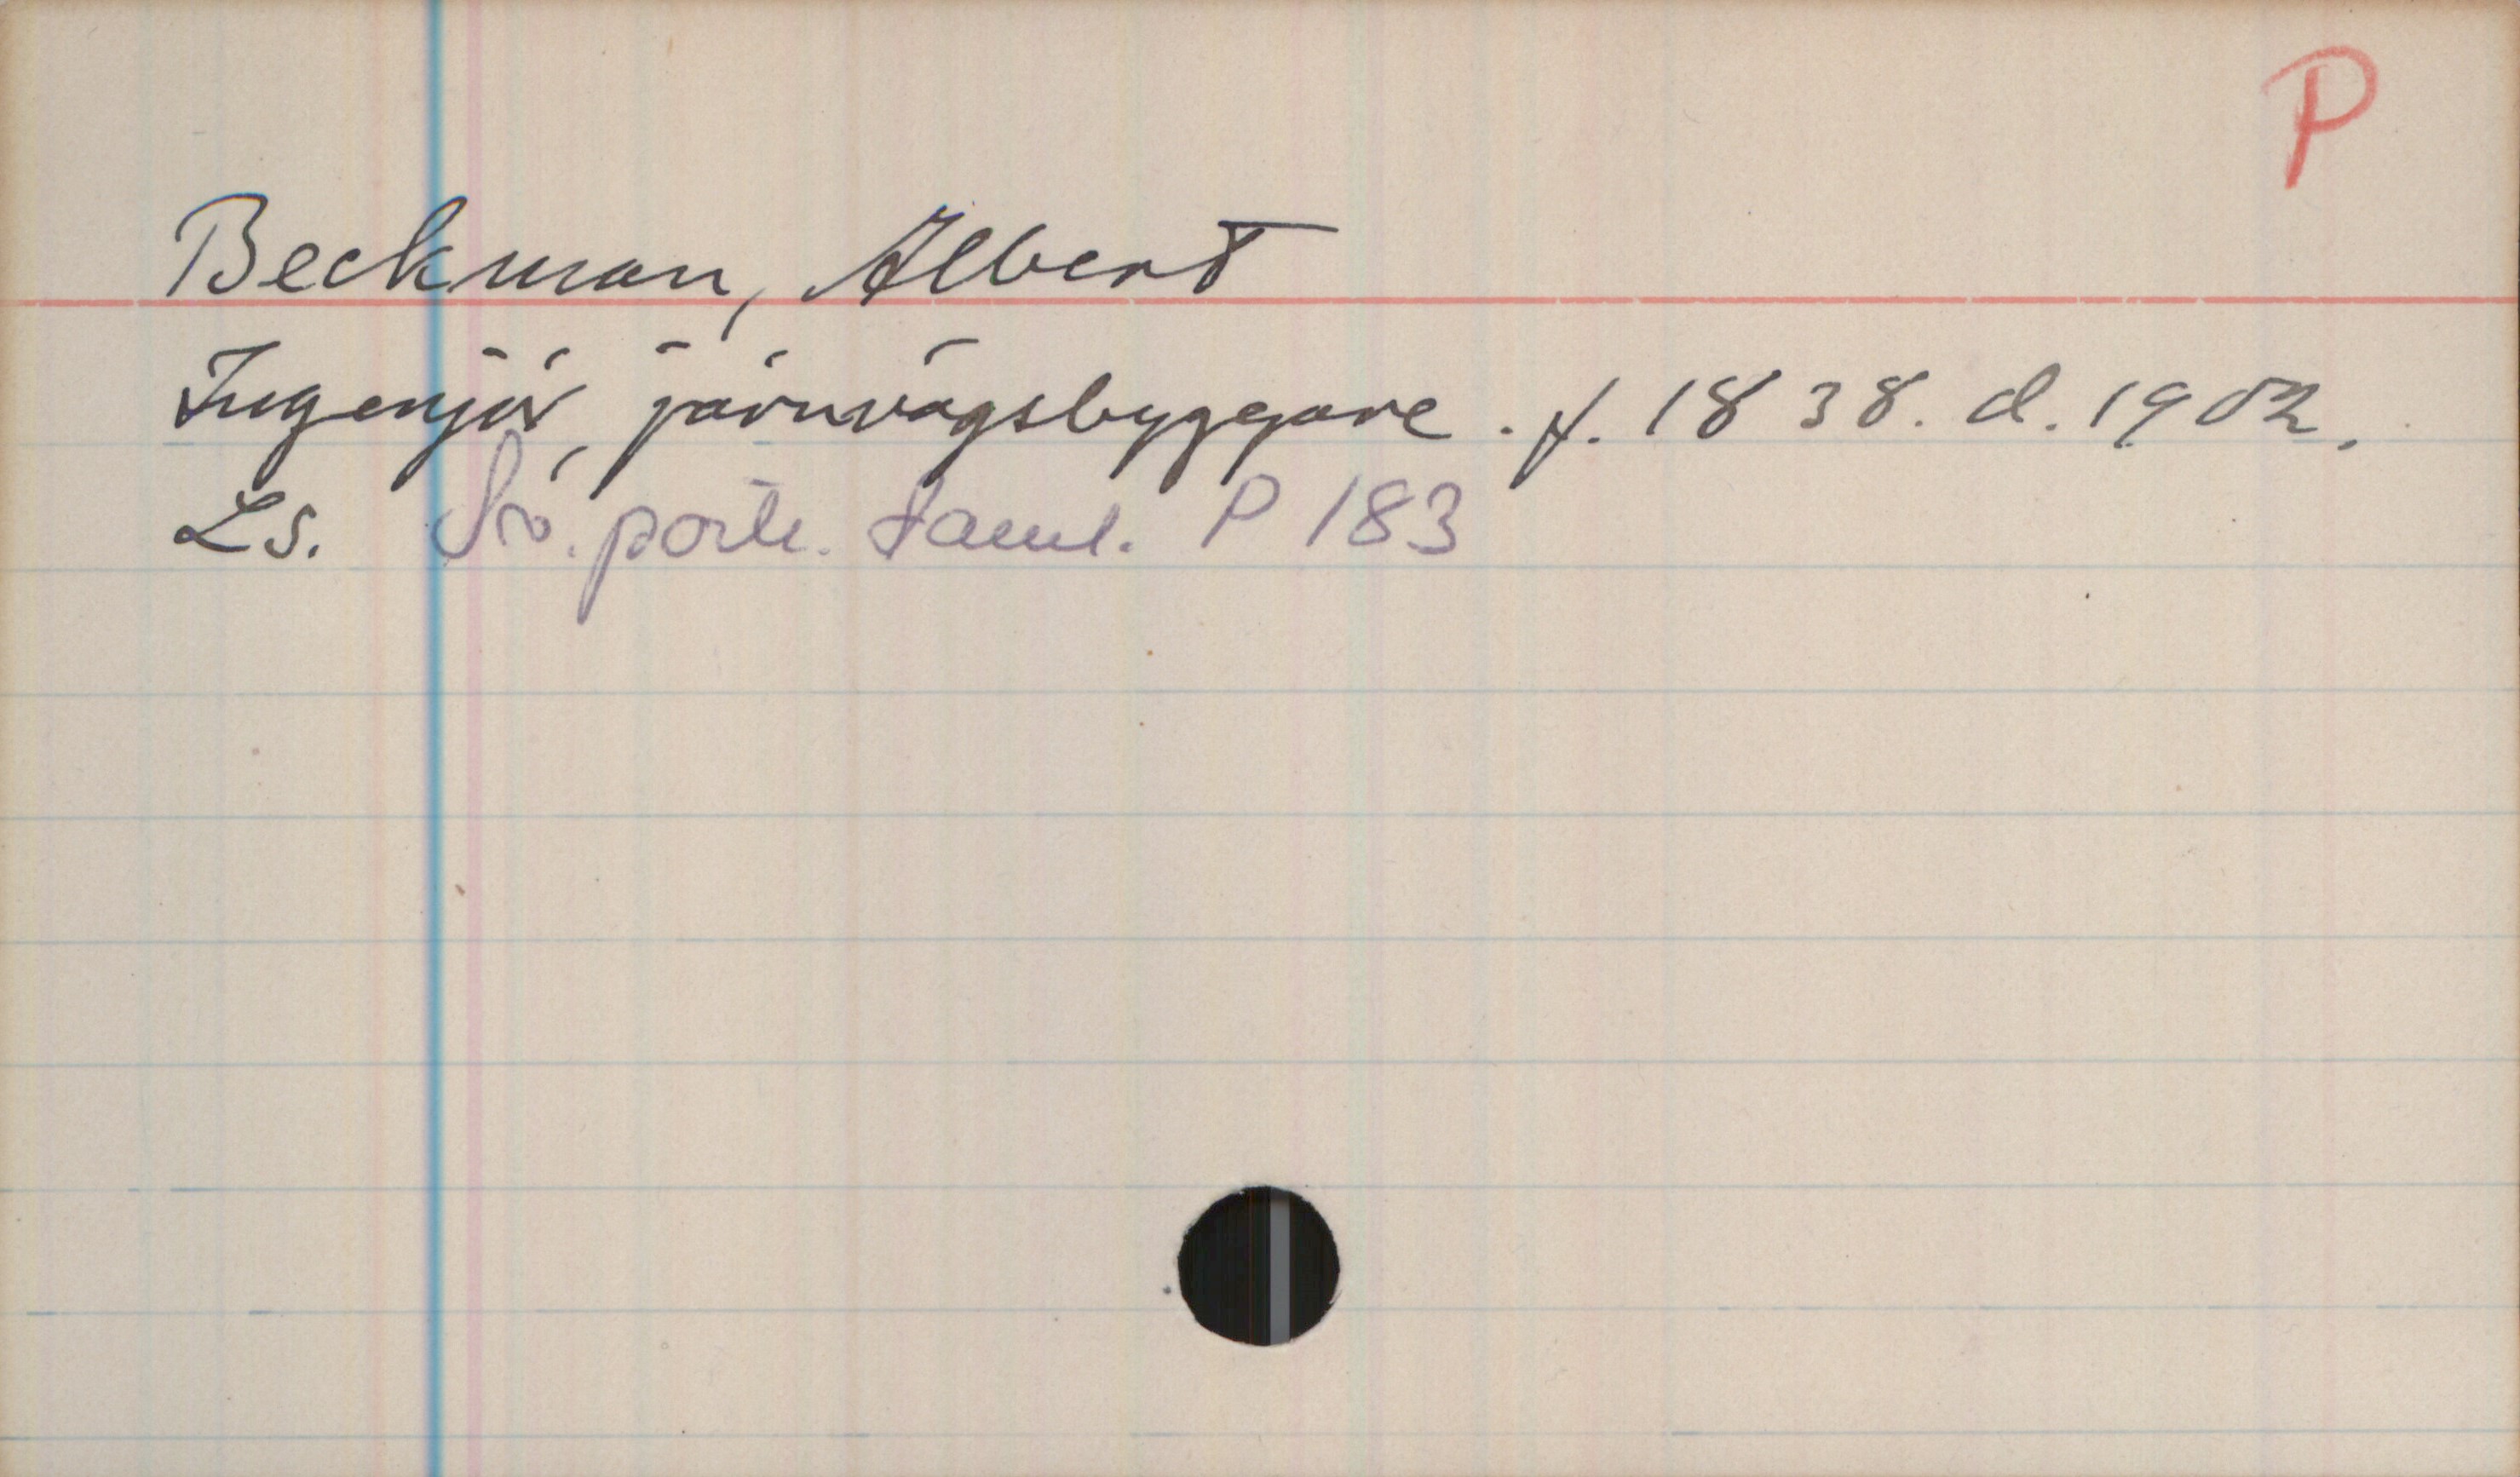 P
Beckman, Albert
Ingenjör, järnvägsbyggare. f. 1838. d. 1902.
Ls. Sv. portr. saml. P 183